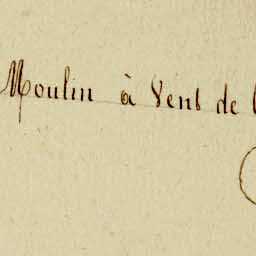 Moulin à Vent de